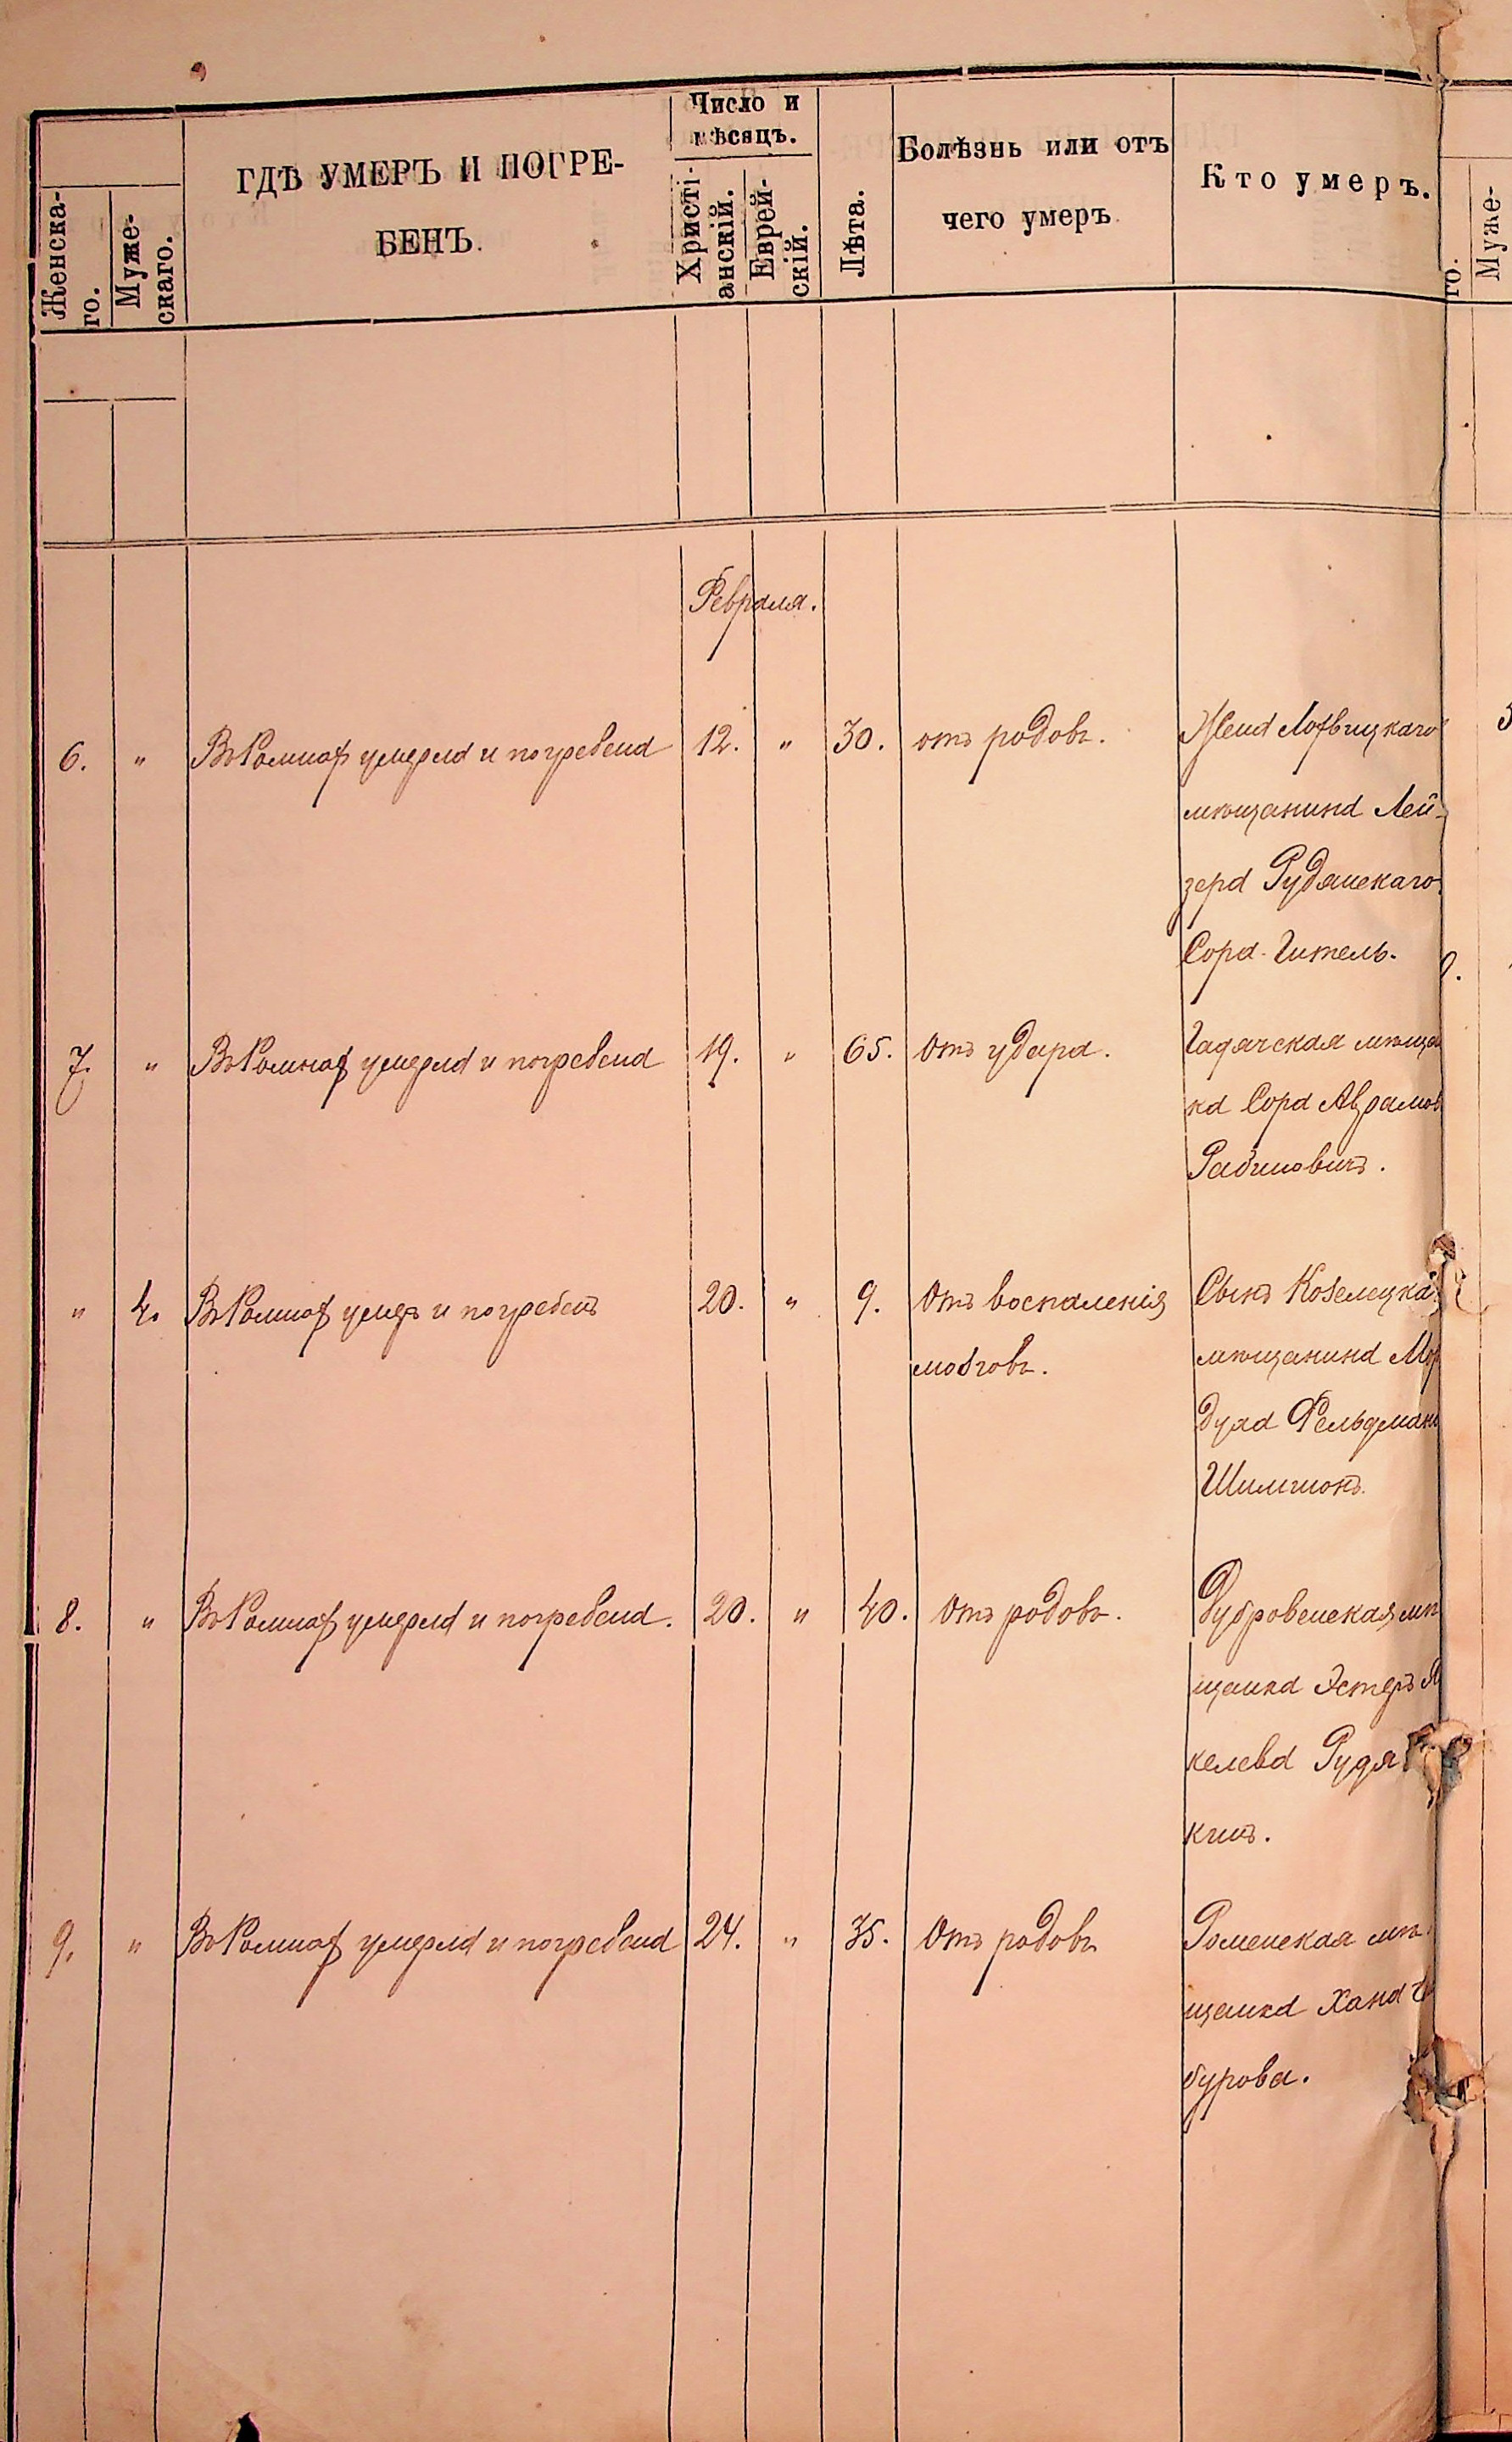 Женска-
го.
Муже-
скаго.
ГДѢ УМЕРЪ И ПОГРЕ-
БЕНЪ.
Число и
мѣсяцъ.
Христі-
анскій.
Еврей-
скій.
Лѣта.
Болѣзнь или отъ
чего умеръ
Кто умеръ.
го.
Муже-
Февраля.
6. " Въ Ромнах умерла и погребена 12. " 30. отъ родовъ. Жена Лохвицкаго
мѣщанина Лей-
зера Рудянскаго
Сора-Гитель.
7. " Въ Ромнах умерла и погребена 19. " 65. Отъ удара. Гадячская мѣща
ка Сора Абрамов
Рабиновичъ.
" 4. Въ Ромнах умеръ и погребенъ 20. " 9. Отъ воспаленія Сынъ Козелецка
мозговъ. мѣщанина Мор
духа Фельдман
Шимшонъ.
8. " Въ Ромнах умерла и погребена. 20. " 40. Отъ родовъ. Дубровенская мѣ
щанка Эстеръ Я
келева Рудя
кинъ.
9. " Въ Ромнах умерла и погребена 24. " 35. Отъ родовъ Роменская мѣ.
щанка Хана
бурова.